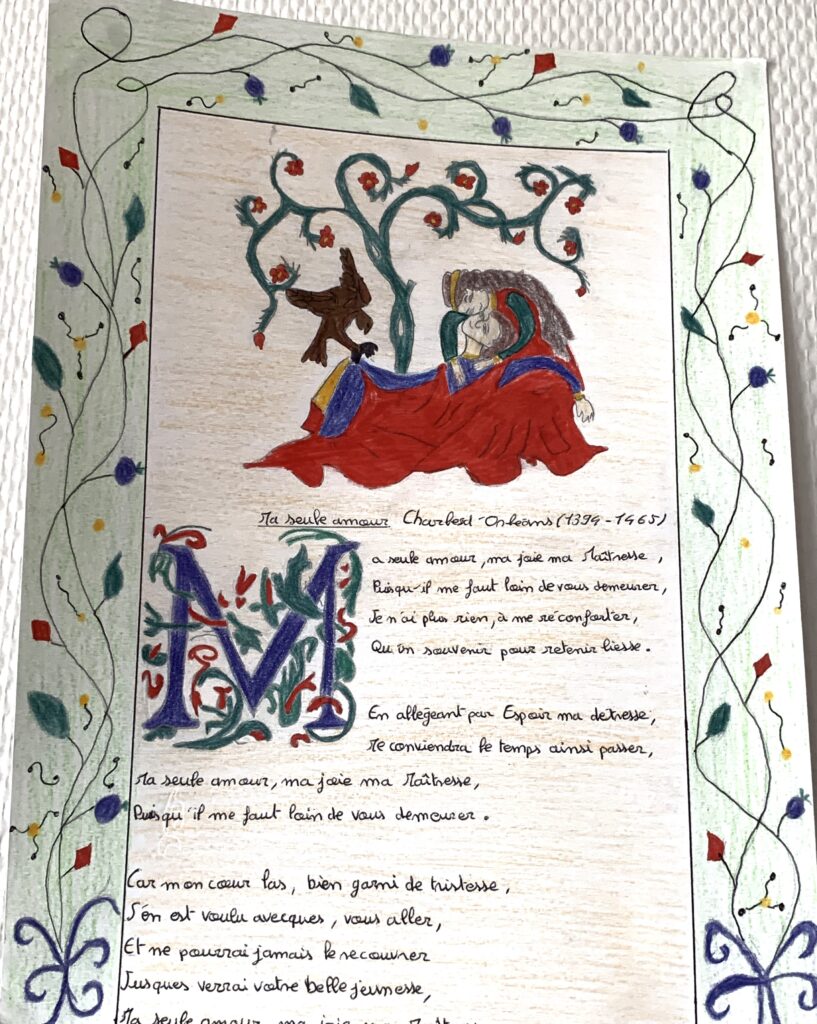 Ma seule amour Charles d'Orléans (1394-1465)
Ma seule amour, ma joie ma Maîtresse,
Puisqu'il me faut loin de vous demeurer,
Je n'ai plus rien, à me réconforter,
Qu'un souvenir pour retenir liesse.
En allégeant par Espoir ma detresse,
Me conviendra le temps ainsi passer,
Ma seule amour, ma joie ma Maîtresse,
Puisqu'il me faut loin de vous demeurer.
Car mon cœur las, bien garni de tristesse,
S'en est voulu avecques, vous aller,
Et ne pourrai jamais le recouvrer
Jusques verrai votre belle jeunesse,
Ma seule amour, ma joie ma Maît